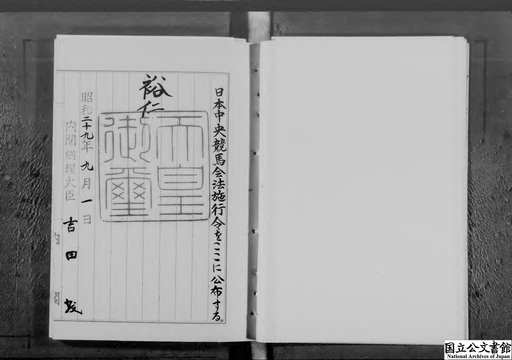 日本中央競馬会法施行令をここに公布する。
裕仁
天皇
御璽
昭和二十九年九月一日
内閣総理大臣 吉田茂
内閣
国立公文書館
National Archives of Japan